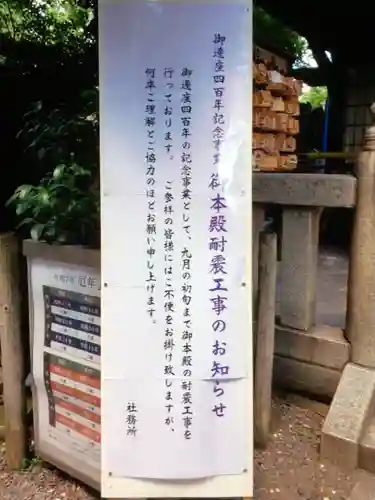 御遷座四百年記念事業 御本殿耐震工事のお知らせ
御遷座四百年の記念事業として、九月の初旬まで御本殿の耐震工事を
行っております。 ご参拝の皆様にはご不便をお掛け致しますが、
何卒ご理解とご協力のほどお願い申し上げます。
社務所
厄年